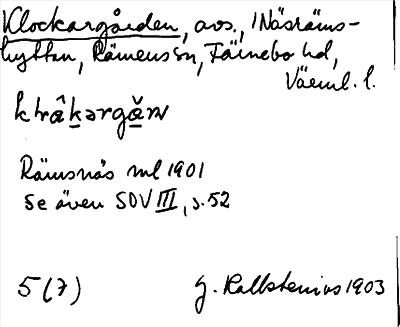 Klockargården, avs., i Näsräms-
hyttan, Rämens sn, Färnebo hd,
Värml. l.
klråkərgån
Rämsnäs ml 1901
se även SOV III, s. 52
5 (7) G. Kallstenius 1903